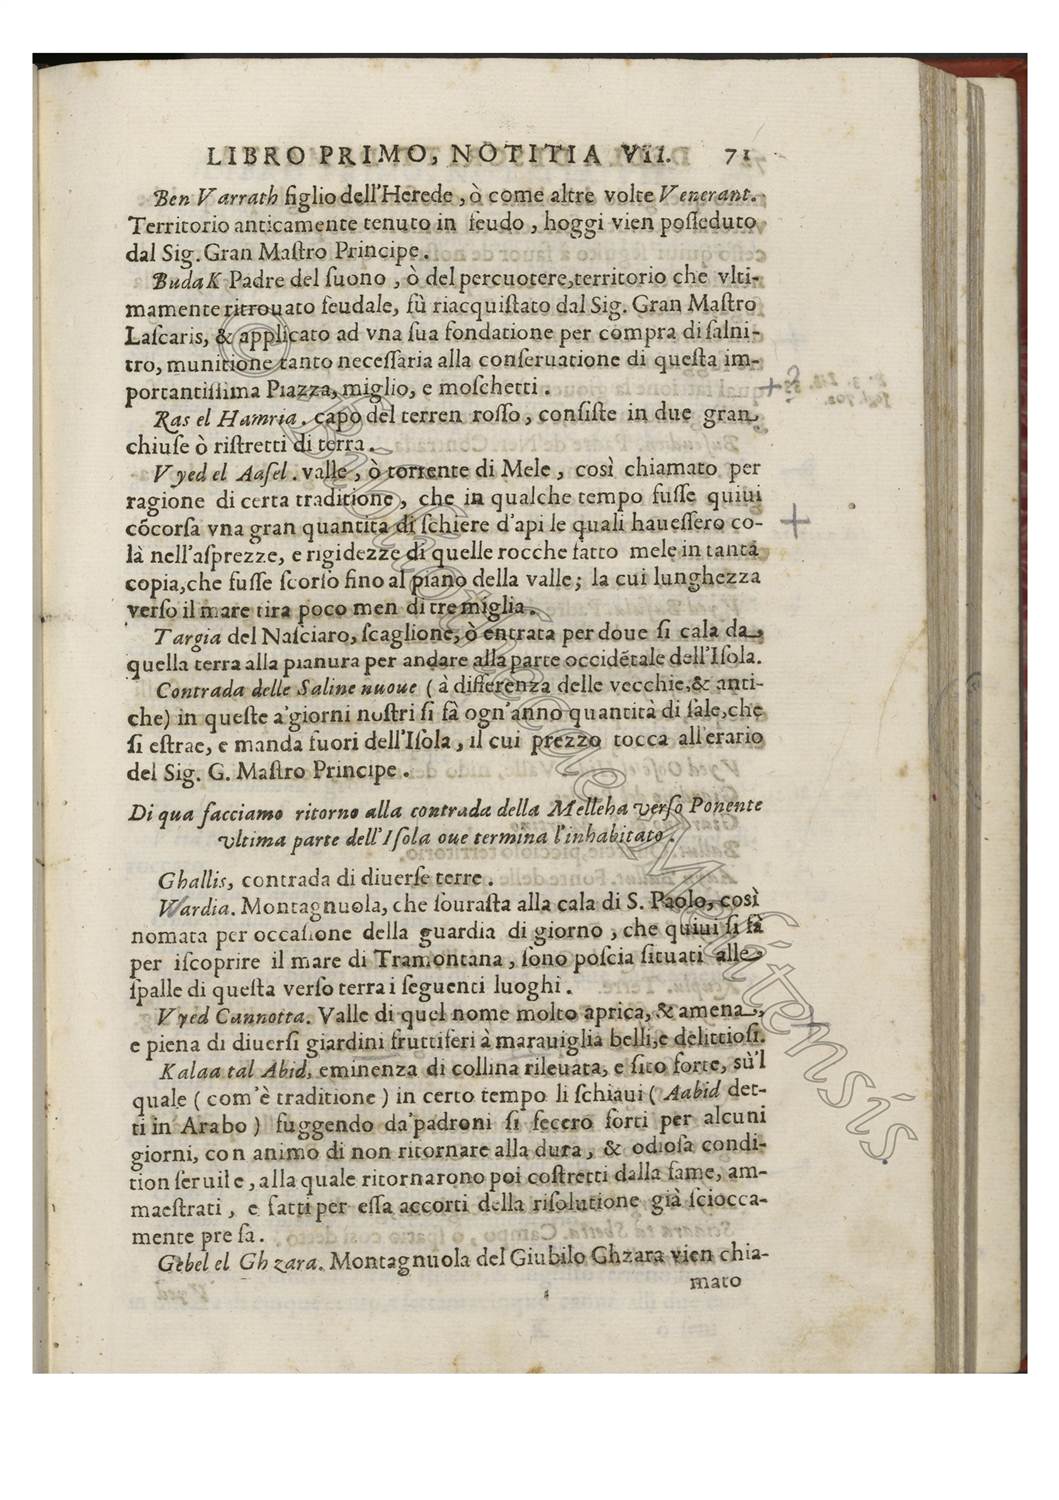 LIBRO PRIMO, NOTITIA VII. 71
Ben Varrath figlio dell'Herede, ò come altre volte Venerant.
Territorio anticamente tenuto in feudo, hoggi vien poſſeduto
dal Sig. Gran Maſtro Principe.
BudaK Padre del ſuono, ò del percuotere, territorio che vlti-
mamente ritrouato feudale, fù riacquiſtato dal Sig. Gran Maſtro
Laſcaris, & applicato ad vna ſua fondatione per compra di ſalni-
tro, munitione tanto neceſſaria alla conſeruatione di queſta im-
portantiſſima Piazza, miglio, e moſchetti.
Ras el Hamria. capo del terren roſſo, conſiſte in due gran
chiuſe ò riſtretti di terra.
Vyed el Aaſel. valle, ò torrente di Mele, così chiamato per
ragione di certa traditione, che in qualche tempo fuſſe quiui
cōcorſa vna gran quantità di ſchiere d'api le quali haueſſero co-
là nell'aſprezze, e rigidezze di quelle rocche fatto mele in tanta
copia, che fuſſe ſcorſo fino al piano della valle; la cui lunghezza
verſo il mare tira poco men di tre miglia.
Targia del Naſciaro, ſcaglione, ò entrata per doue ſi cala da
quella terra alla pianura per andare alla parte occidētale dell'Iſola.
Contrada delle Saline nuoue (à differenza delle vecchie, & anti-
che) in queſte a'giorni noſtri ſi fà ogn'anno quantità di ſale, che
ſi eſtrae, e manda fuori dell'Iſola, il cui prezzo tocca all'erario
del Sig. G. Maſtro Principe.
Di qua facciamo ritorno alla contrada della Melleha verſo Ponente
vltima parte dell'Iſola oue termina l'inhabitato.
Ghallis, contrada di diuerſe terre.
Wardia. Montagnuola, che ſouraſta alla cala di S. Paolo, così
nomata per occaſione della guardia di giorno, che quiui ſi fà
per iſcoprire il mare di Tramontana, ſono poſcia ſituati alle
ſpalle di queſta verſo terra i ſeguenti luoghi.
Vyed Cannotta. Valle di quel nome molto aprica, & amena,
e piena di diuerſi giardini fruttiferi à marauiglia belli, e delittioſi.
Kalaa tal Abid, eminenza di collina rileuata, e ſito forte, sù'l
quale (com'è traditione) in certo tempo li ſchiaui (Aabid det-
ti in Arabo) fuggendo da'padroni ſi fecero forti per alcuni
giorni, con animo di non ritornare alla dura, & odioſa condi-
tion ſeruile, alla quale ritornarono poi coſtretti dalla fame, am-
maeſtrati, e fatti per eſſa accorti della riſolutione già ſciocca-
mente preſa.
Gebel el Ghzara. Montagnuola del Giubilo Ghzara vien chia-
mato
© Bibliotheca Melitensis